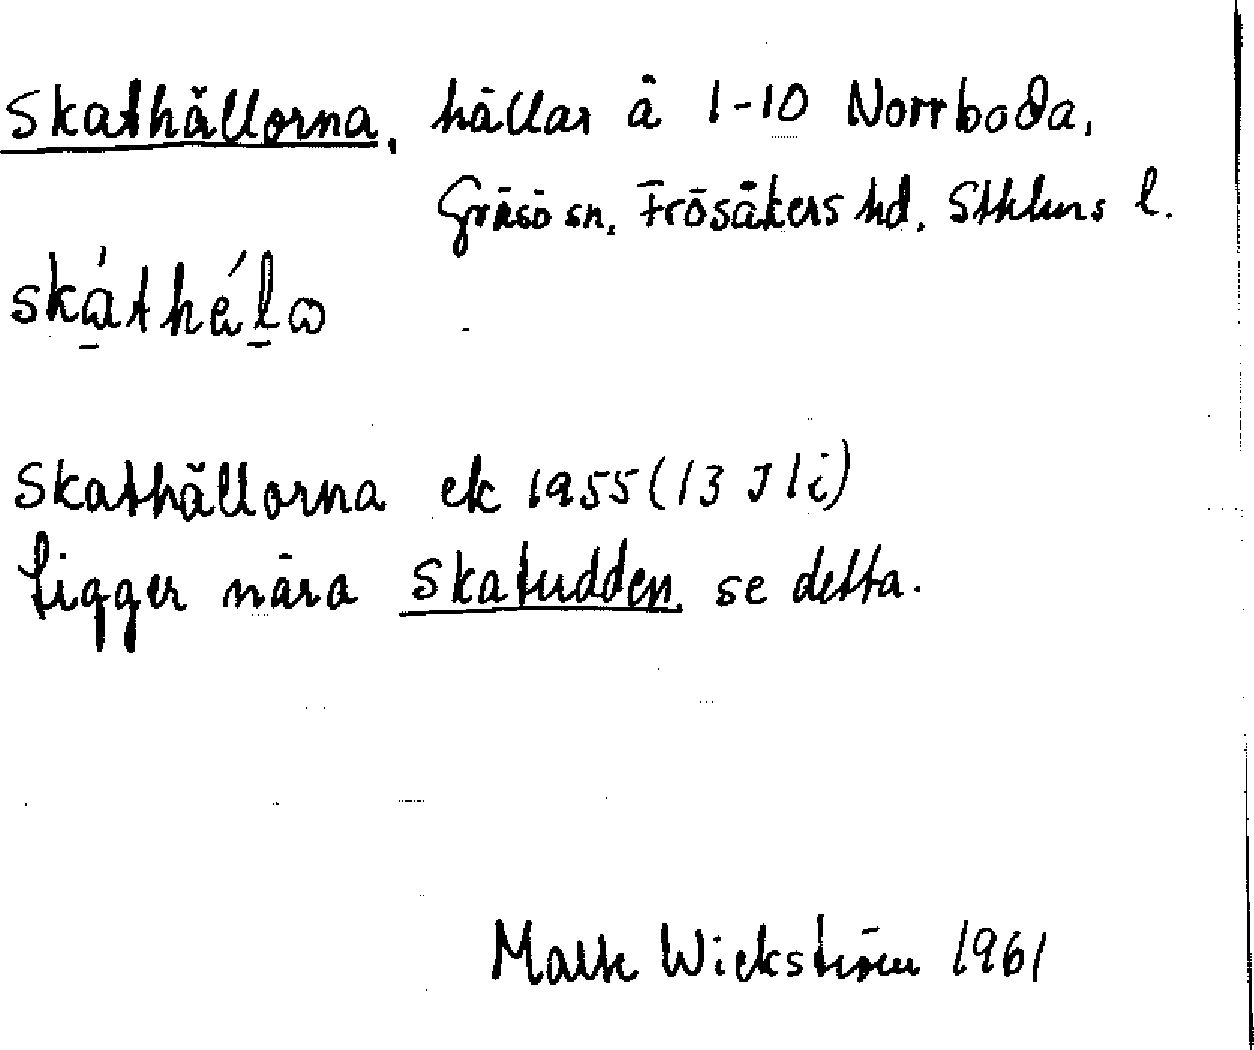 Skathällorna, hällar å 1-10 Norrboda,
Gräsö sn, Frösåkers hd, Sthlms l.
skáthéla
Skathällorna ek 1955 (13 I 1 i)
Ligger nära Skatudden, se detta.
Wickström 1961